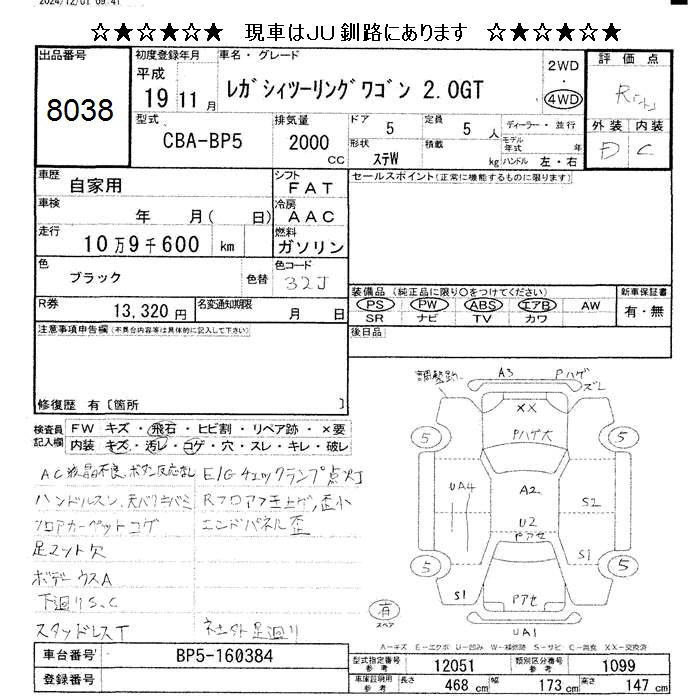 2024/12/01 09:41
☆★☆★☆★ 現車はJU釧路にあります ☆★☆★☆★
出品番号
8038
初度登録年月
平成
19 11 月
車名・グレード
レガシィツーリングワゴン 2.0GT
2WD
・
4WD
評価点
R
外装 内装
D C
型式
CBA-BP5
排気量
2000
CC
ドア 5
定員 5 人
ディーラー・並行
形状
ステW
積載
kg
モデル年式 年
ハンドル 左・右
車歴
自家用
シフト
FAT
セールスポイント(正常に機能するものに限ります)
車検
年 月( 日)
冷房
AAC
走行
10万9千600 km
燃料
ガソリン
色
ブラック
色替
色コード
32J
装備品(純正品に限り○をつけてください)
PS PW ABS エアB AW
SR ナビ TV カワ
新車保証書
有・無
R券
13,320円
名変通知期限
月 日
後日品
注意事項申告欄(不具合内容等は具体的に記入して下さい)
修復歴 有〔箇所 〕
検査員記入欄
FW キズ・飛石・ヒビ割・リペア跡・×要
内装 キズ・汚レ・コゲ・穴・スレ・キレ・破レ
AC液晶不良、ボタン反応乱
E/Gチェックランプ点灯
ハンドルスレ、天バリキバミ
Rフロア突上ゲ、歪小
フロアカーペットコゲ
エンドパネル歪
足マット欠
ボデーウスA
下廻りS、C
スタッドレスT
社外足廻り
調整跡
A3
Pハゲ
ズレ
XX
Pハゲ大
5
5
UA4
A2
S2
U2
Pアセ
S1
5
5
S1
Pアセ
有
スペア
UA1
A-キズ E-エクボ U-凹み W-補修跡 S-サビ C-腐食 XX-交換済
車台番号
BP5-160384
登録番号
型式指定番号
参考
12051
類別区分番号
参考
1099
車庫証明用
参考
長さ 468 cm
幅 173 cm
高さ 147 cm